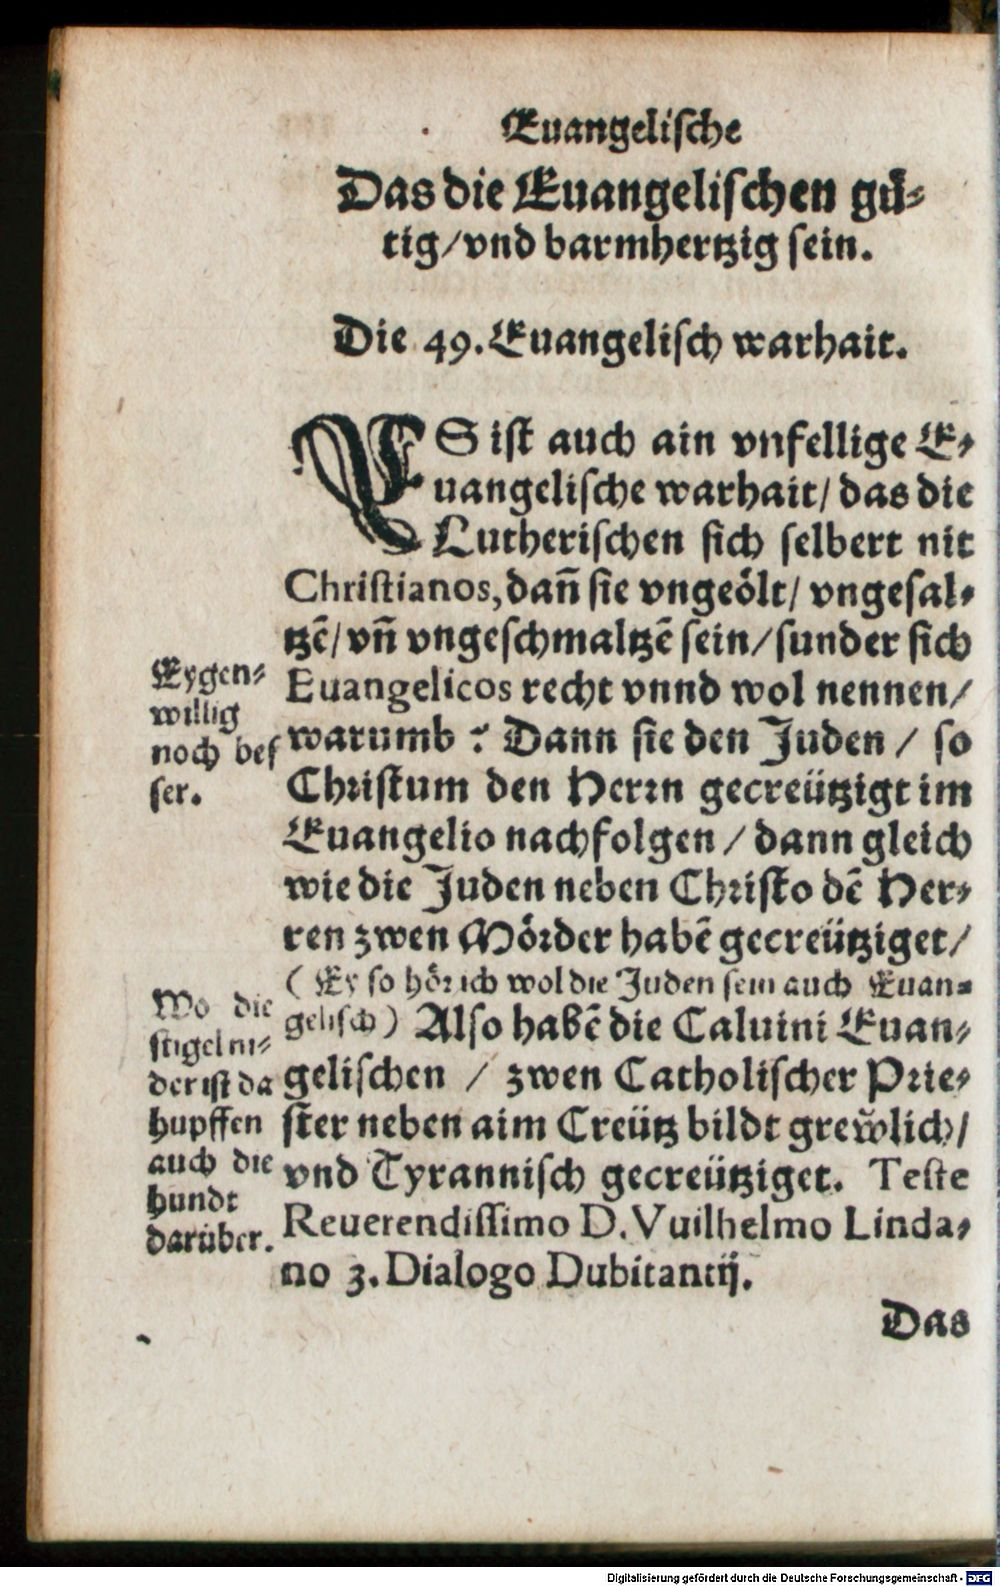 Euangelische
Das die Euangelischen gü-
tig/vnd barmhertzig sein.
Die 49. Euangelisch warhait.
ES ist auch ain vnfellige E-
uangelische warhait/ das die
Lutherischen sich selbert nit
Christianos, dañ sie vngeölt/ vngesal-
tzẽ/ vñ vngeschmaltzẽ sein/ sunder sich
Euangelicos recht vnnd wol nennen/
warumb? Dann sie den Juden / so
Christum den Herrn gecreützigt im
Euangelio nachfolgen / dann gleich
wie die Juden neben Christo dẽ Her-
ren zwen Mörder habẽ gecreütziget/
( Ey so hör ich wol die Juden sein auch Euan-
gelisch) Also habẽ die Caluini Euan-
gelischen / zwen Catholischer Prie-
ster neben aim Creütz bildt grewlich/
vnd Tyrannisch gecreütziget. Teste
Reuerendissimo D. Vuilhelmo Linda-
no 3. Dialogo Dubitantij.
Das
Eygen-
willig
noch bes
ser.
Wo die
stigel ni-
der ist da
hupffen
auch die
hundt
darüber.
Digitalisierung gefördert durch die Deutsche Forschungsgemeinschaft - DFG